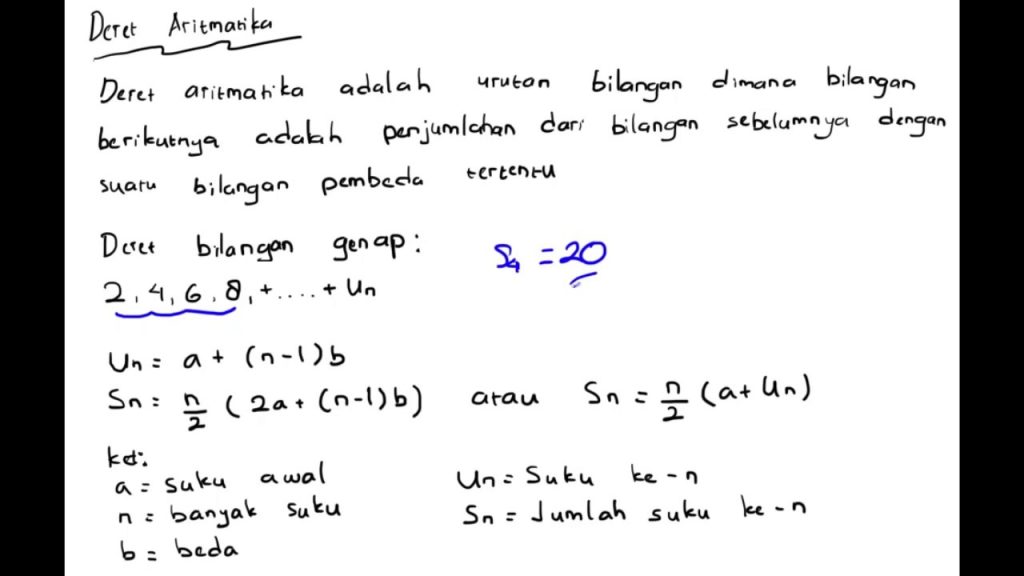 Deret Aritmatika
Deret aritmatika adalah urutan bilangan dimana bilangan
berikutnya adalah penjumlahan dari bilangan sebelumnya dengan
suatu bilangan pembeda tertentu
Deret bilangan genap: S₄ = 20
2, 4, 6, 8, + .... + Un
Un = a + (n-1)b
Sn = n/2 (2a + (n-1)b) atau Sn = n/2 (a + Un)
ket:
a = suku awal Un = Suku ke-n
n = banyak suku Sn = Jumlah suku ke-n
b = beda